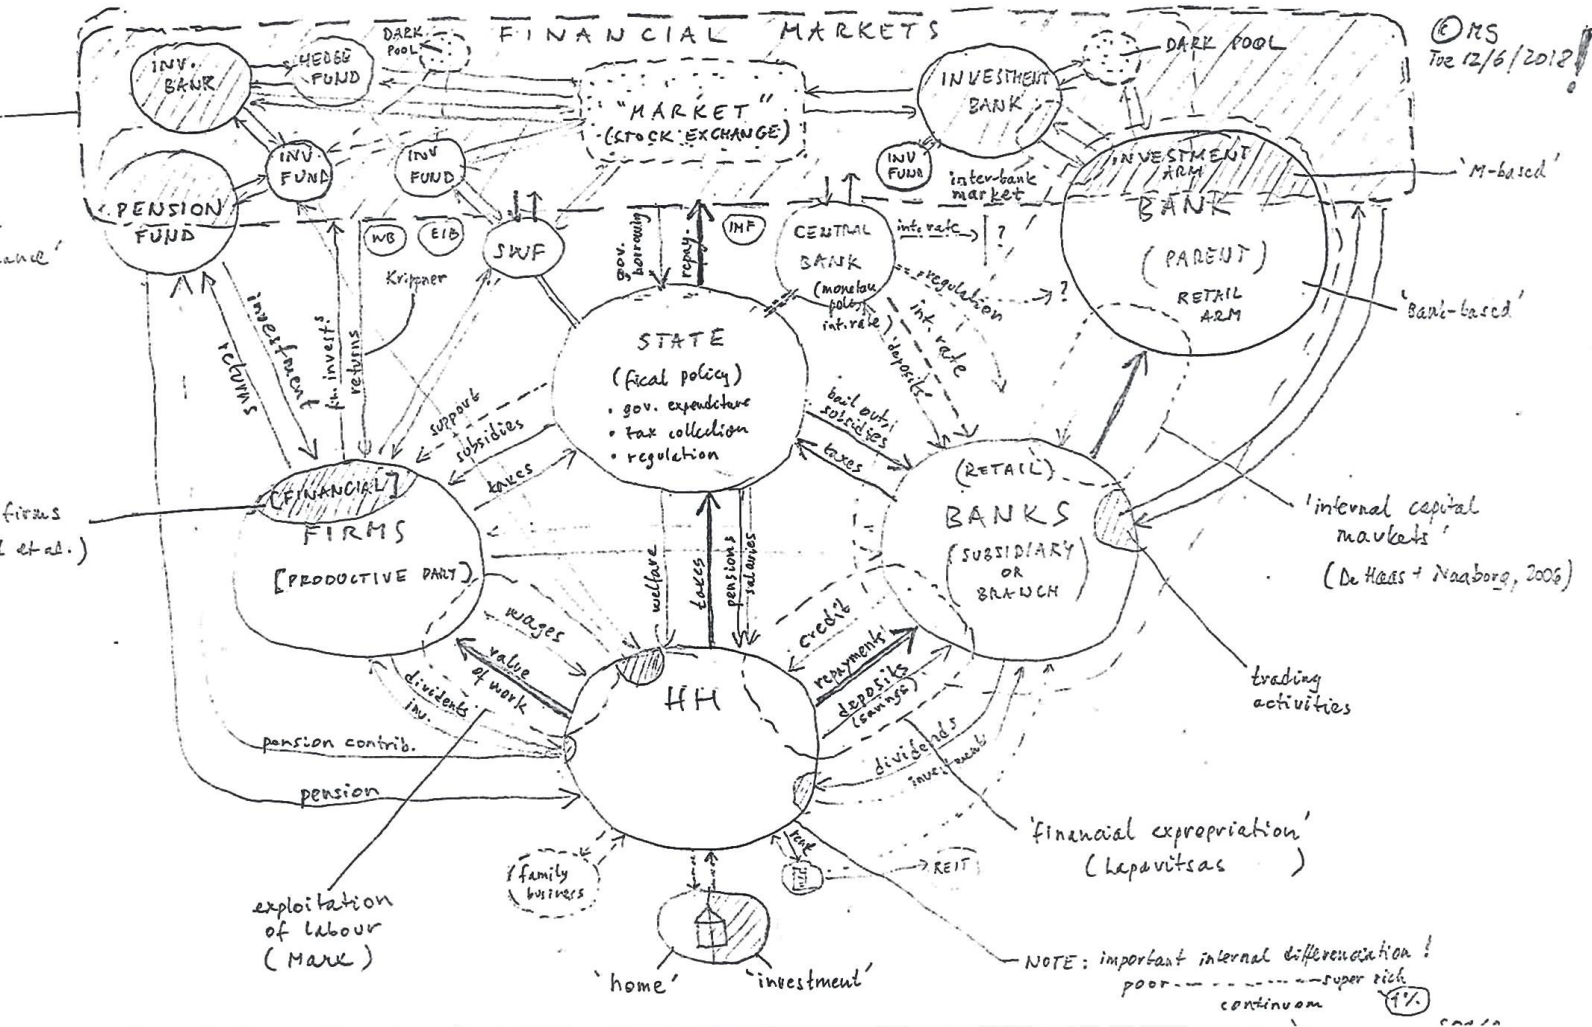 FINANCIAL MARKETS
© MS
Tue 12/6/2018!
INV.
BANK
HEDGE
FUND
DARK
POOL
"MARKET"
(STOCK EXCHANGE)
INVESTMENT
BANK
DARK POOL
INV.
FUND
INV
FUND
INV
FUND
inter-bank
market
INVESTMENT
ARM
BANK
(PARENT)
RETAIL
ARM
'M-based'
'Bank-based'
PENSION
FUND
WB
EIB
SWF
IMF
gov.
borrowing
repay.
CENTRAL
BANK
(monetary
pol.,
int.rate)
int. rate
?
regulation
?
int. rate
deposits
Krippner
ance'
returns
investment
fin. invest.s
returns
STATE
(fical policy)
• gov. expenditure
• tax collection
• regulation
support
subsidies
taxes
bail outs
subsidies
taxes
[FINANCIAL]
FIRMS
[PRODUCTIVE PART]
firms
et al.)
(RETAIL)
BANKS
(SUBSIDIARY
OR
BRANCH)
'internal capital
markets'
(De Haas + Naaborg, 2006)
trading
activities
welfare
taxes
pensions
salaries
wages
value
of work
dividents
inv.
credit
repayments
deposits
(savings)
dividends
investment
HH
pension contrib.
pension
'financial expropriation'
(Lapavitsas )
family
business
rent
REIT
exploitation
of labour
(Marx)
'home'
'investment'
NOTE: important internal differenciation!
poor - - - - - - - super rich
continuum
1%